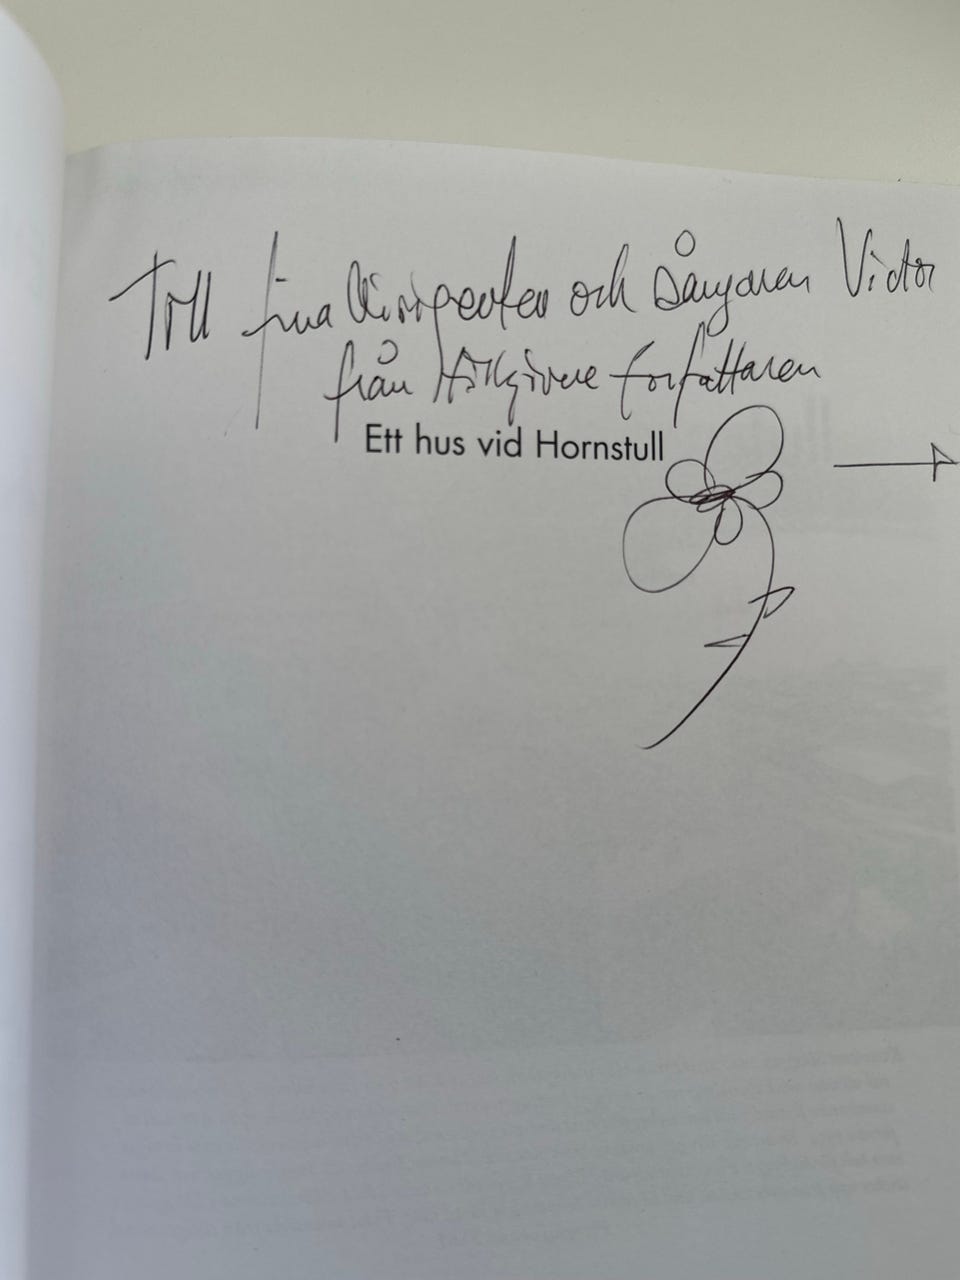 Till fina dirigenten och sångaren Victor
från tillgivne författaren
Ett hus vid Hornstull